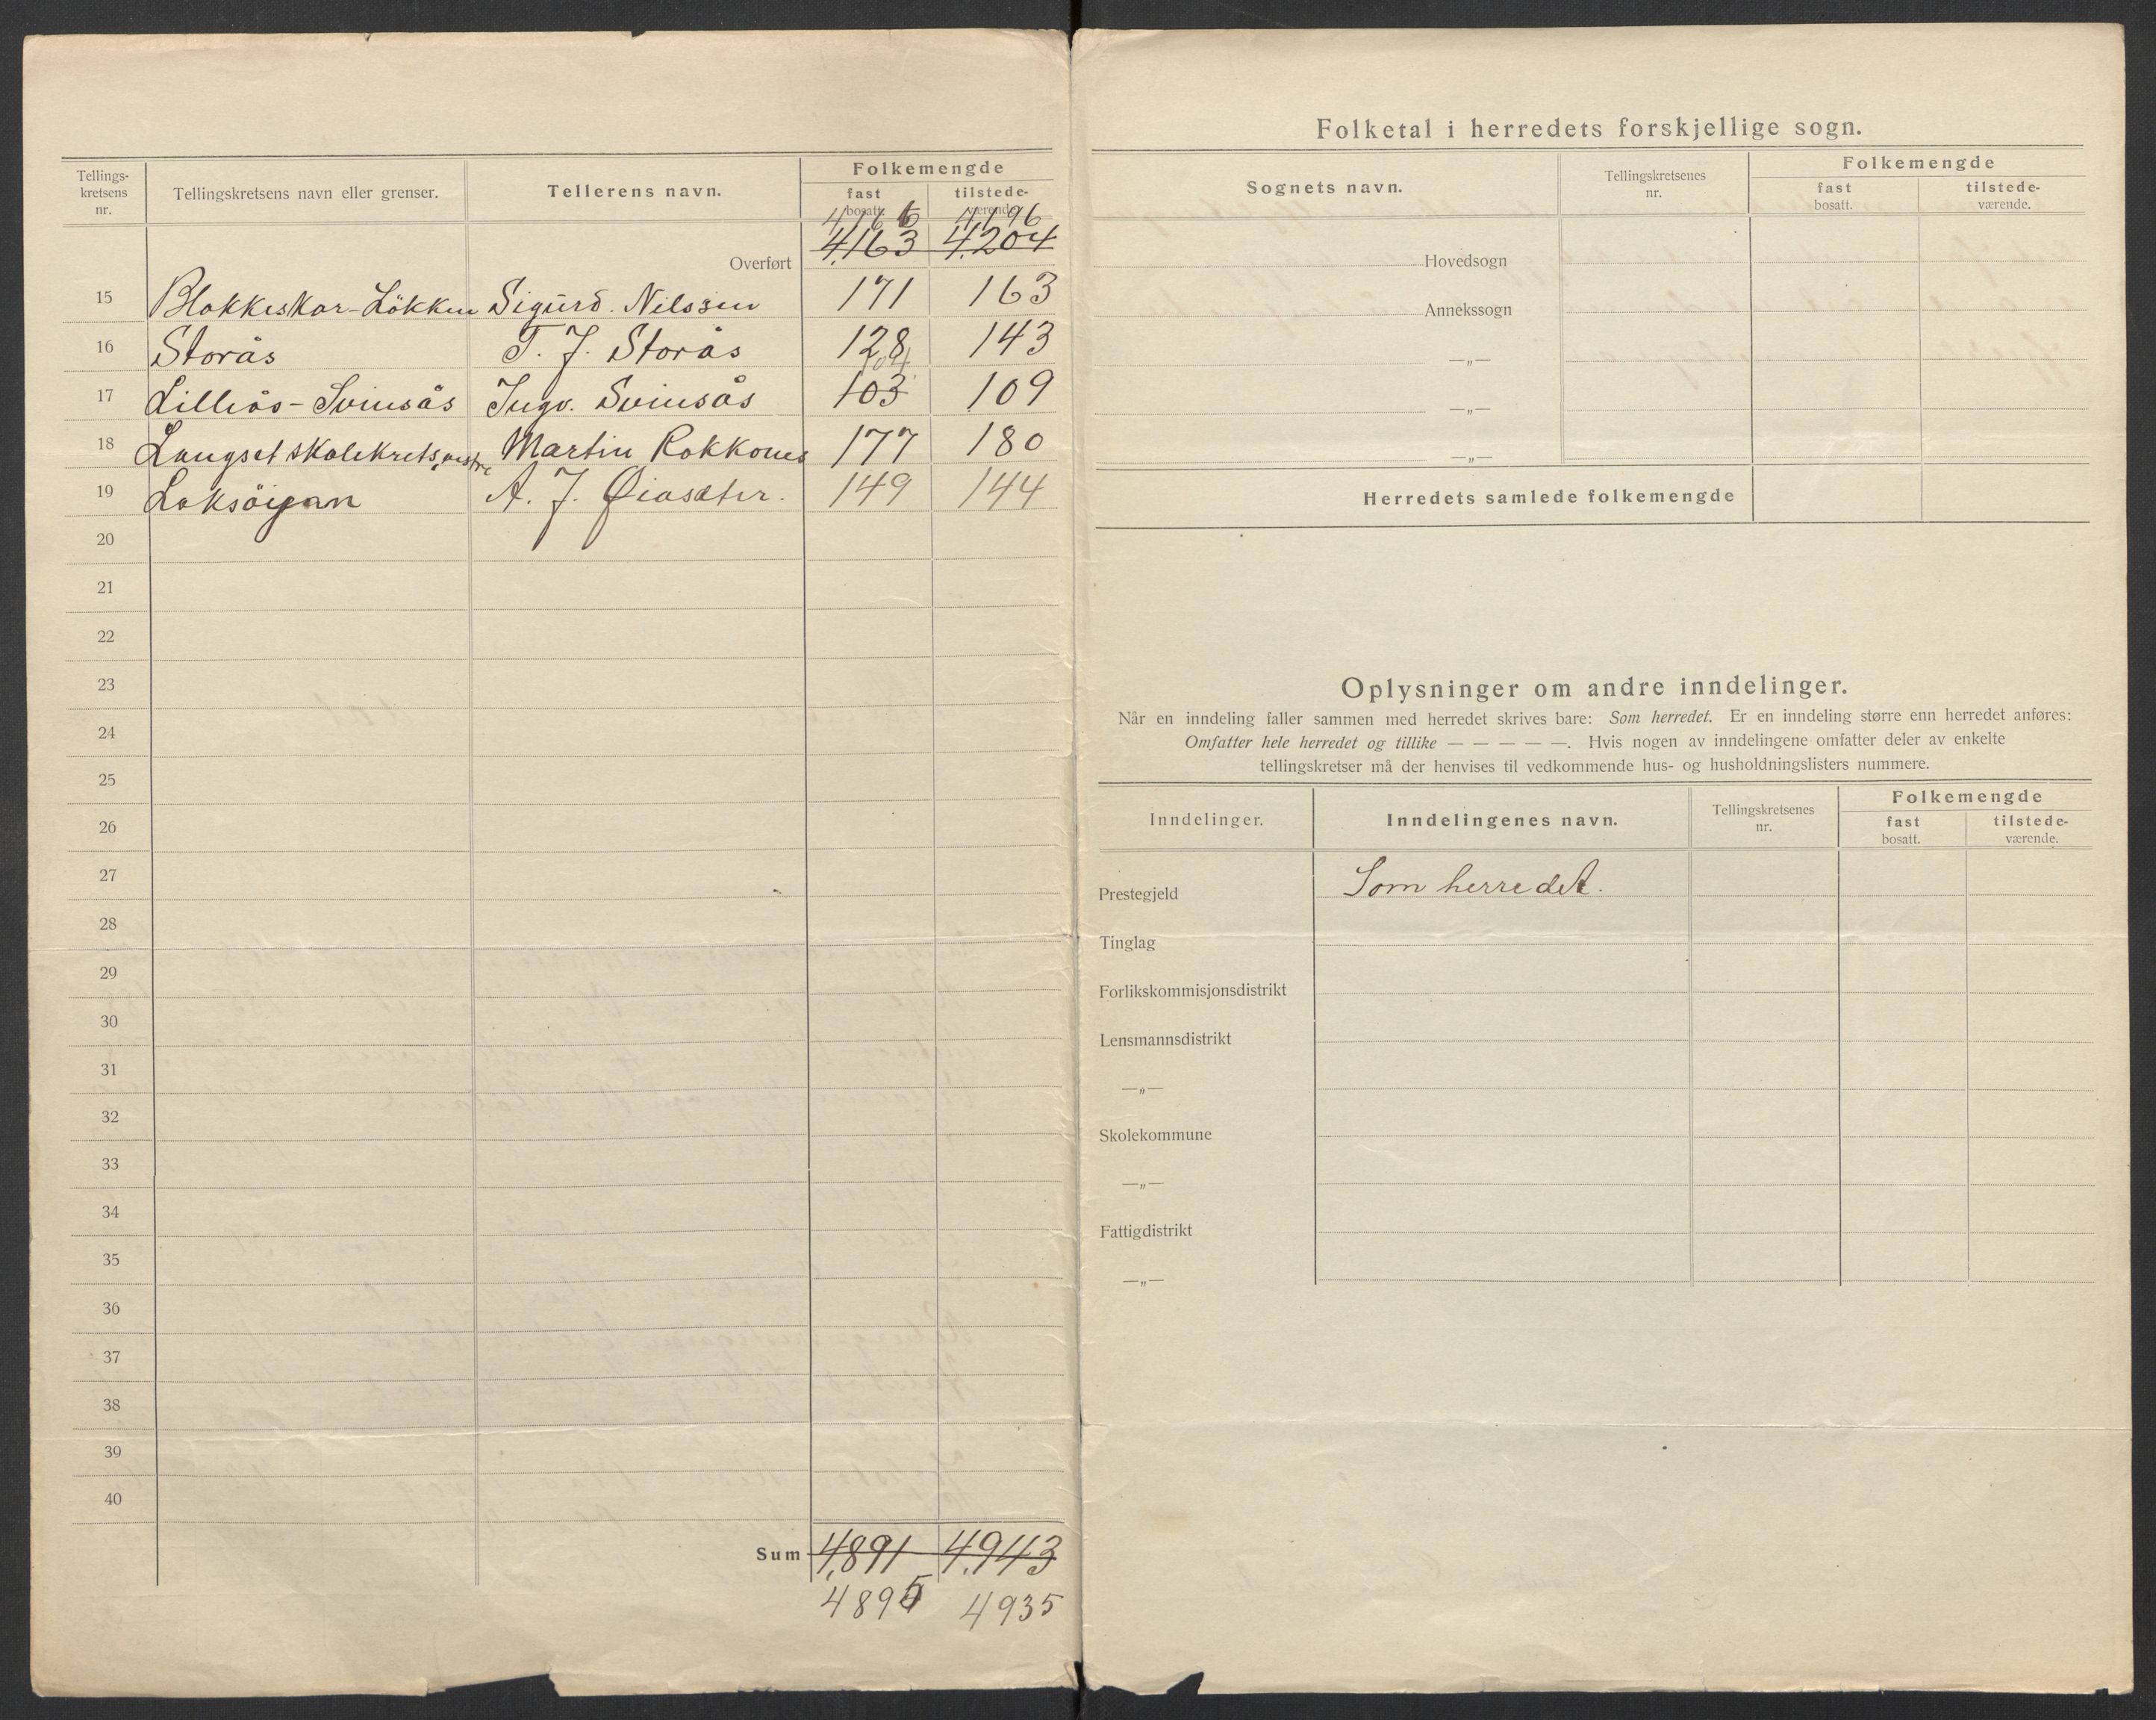 Tellings-
kretsens
nr.
Tellingskretsens navn eller grenser.
Tellerens navn.
Folkemengde
fast
bosatt.
tilstede-
værende.
4,166 4,196
Overført 4,163 4,204
15 Blokkeskar-Lökken Sigurd. Nilssen 171 163
16 Storås T. J. Storås 128 143
104
17 Lilleås - Svinsås Ingv. Svinsås 103 109
18 Langset skolekrets, vestre Martin Rokkones 177 180
19 Laksöigan A. J. Øiasæter. 149 144
20
21
22
23
24
25
26
27
28
29
30
31
32
33
34
35
36
37
38
39
40
Sum 4,891 4,943
4895 4935
Folketal i herredets forskjellige sogn.
Sognets navn.
Tellingskretsenes
nr.
Folkemengde
fast
bosatt.
tilstede-
værende.
Hovedsogn
Annekssogn
—„—
—„—
—„—
Herredets samlede folkemengde
Oplysninger om andre inndelinger.
Når en inndeling faller sammen med herredet skrives bare: Som herredet. Er en inndeling større enn herredet anføres:
Omfatter hele herredet og tillike — — — — —. Hvis nogen av inndelingene omfatter deler av enkelte
tellingskretser må der henvises til vedkommende hus- og husholdningslisters nummere.
Inndelinger.
Inndelingenes navn.
Tellingskretsenes
nr.
Folkemengde
fast
bosatt.
tilstede-
værende.
Prestegjeld Som herredet.
Tinglag
Forlikskommisjonsdistrikt
Lensmannsdistrikt
—„—
Skolekommune
—„—
Fattigdistrikt
—„—